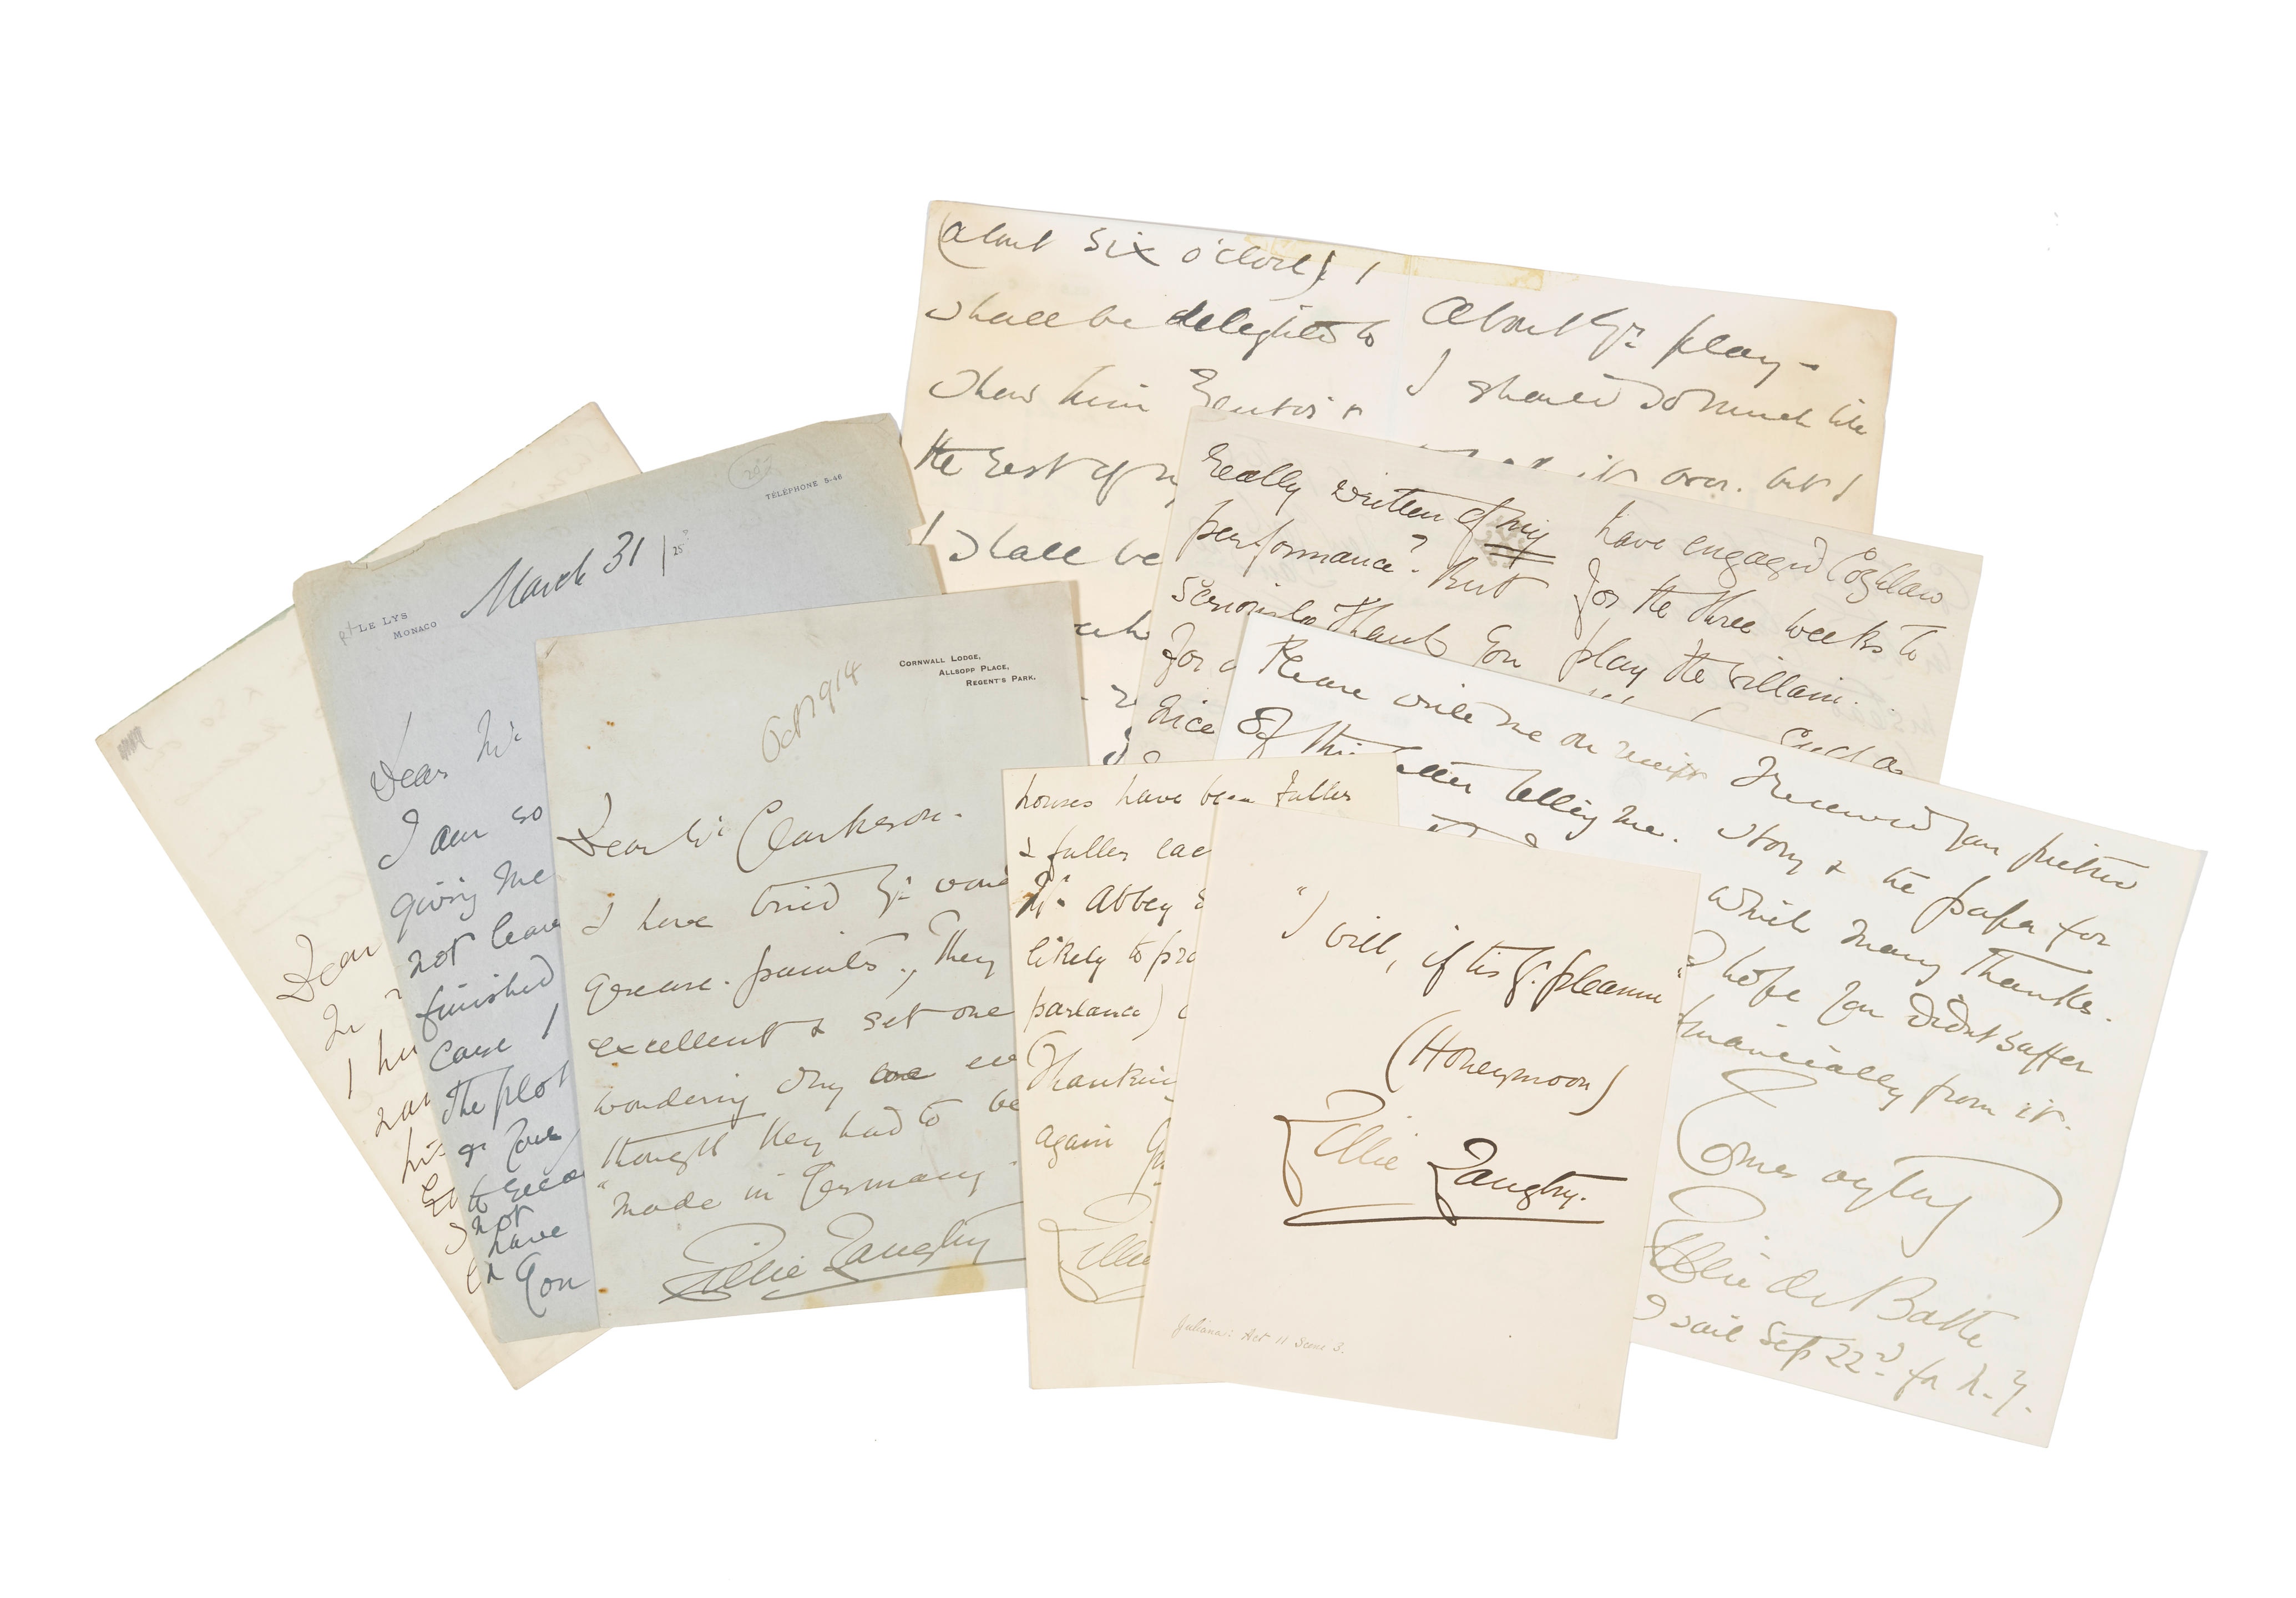 (about six o'clock) I
shall be delighted to
show him
the rest of my
I shall be
about yr. play -
I should so much like
it over. but I
really written of my
performance? But
seriously thank you
for a
nice
have engaged Coghlan
for the three weeks to
play the villain.
such a
Please write me on receipt
of this letter telling me.
I received your picture
story & the paper for
which many thanks.
I hope you didnt suffer
financially from it.
Lillie de Bathe
I sail Sep 22nd. for N.Y.
houses have been fuller
& fuller eac
Mr. Abbey
likely to pro
parlance)
Thanking
again
Lillie
"I will, if tis yr. pleasure"
(Honeymoon)
Lillie Langtry.
Juliana: Act 11 Scene 3.
Cornwall Lodge,
Allsopp Place,
Regent's Park.
Oct 1914
Dear Mr Clarkson.
I have tried yr. wond
grease. paints., They
excellent & set one
wondering why eve
thought they had to be
"made in Germany"
Lillie Langtry
TÉLÉPHONE 5-46
LE LYS
MONACO
March 31 | 25
Dear Mr
I am so
giving me
not leave
finished
case I
the plot
not
have
You
Dear
I